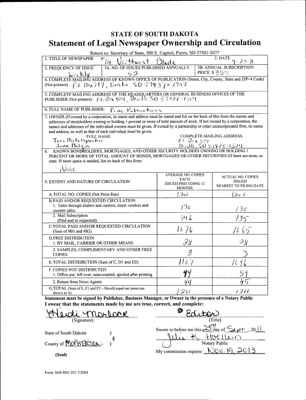 STATE OF SOUTH DAKOTA
Statement of Legal Newspaper Ownership and Circulation
Return to: Secretary of State, 500 E. Capitol, Pierre, SD 57501-5077
1. TITLE OF NEWSPAPER The Northwest Blade
2. DATE
1. FREQUENCY OF ISSUE Weekly
3A. NO. OF ISSUES PUBLISHED ANNUALLY 52
3B. ANNUAL SUBSCRIPTION PRICE
4. COMPLETE MAILING ADDRESS OF KNOWN OFFICE OF PUBLICATION (Street, City, County, State and ZIP+4 Code)
(Not printers) Eureka SD 57437
5. COMPLETE MAILING ADDRESS OF THE HEADQUARTERS OR GENERAL BUSINESS OFFICES OF THE
PUBLISHER (Not printers)
6. FULL NAME OF PUBLISHER: Publications
7. OWNER (If owned by a corporation, its name and address must be stated and also on the back of this form the names and
addresses of stockholders owning or holding 1 percent or more of total amount of stock. If not owned by a corporation, the
names and addresses of the individual owners must be given. If owned by a partnership or other unincorporated firm, its name
and address, as well as that of each individual must be given.
FULL NAME
COMPLETE MAILING ADDRESS
8. KNOWN BONDHOLDERS, MORTGAGES, AND OTHER SECURITY HOLDERS OWNING OR HOLDING 1
PERCENT OR MORE OF TOTAL AMOUNT OF BONDS, MORTGAGES OR OTHER SECURITIES (If there are none, so
state. If more space is needed, list on back of this form)
None
9. EXTENT AND NATURE OF CIRCULATION
AVERAGE NO. COPIES EACH ISSUED PRECEDING 12 MONTHS
ACTUAL NO. COPIES ISSUED NEAREST TO FILING DATE
A. TOTAL NO. COPIES (Net Press Run) 1200 1200
B. PAID AND/OR REQUESTED CIRCULATION
1. Sales through dealers and carriers, street vendors and counter sales 130 130
2. Mail Subscription (Paid and/or requested) 946 935
C. TOTAL PAID AND/OR REQUESTED CIRCULATION (Sum of 9B1 and 9B2) 1076 1065
D. FREE DISTRIBUTION
1. BY MAIL, CARRIER OR OTHER MEANS 28 28
2. SAMPLES, COMPLIMENTARY AND OTHER FREE COPIES 3 3
E. TOTAL DISTRIBUTION (Sum of C, D1 and D2) 1107 1096
F. COPIES NOT DISTRIBUTED
1. Office use, left over, unaccounted, spoiled after printing 59
2. Return from News Agents 44 45
G. TOTAL (Sum of E, F1 and F2 - Should equal net press run shown in A) 1200 1200
Statement must be signed by Publisher, Business Manager, or Owner in the presence of a Notary Public
I swear that the statements made by me are true, correct, and complete:
Editor
(Signature) (Title)
State of South Dakota )
) §
County of McPherson )
(Seal)
Sworn to before me this day of Sept, 2011
Notary Public
My commission expires: Nov. 19, 2013
Form: SOS REC 051 7/2004